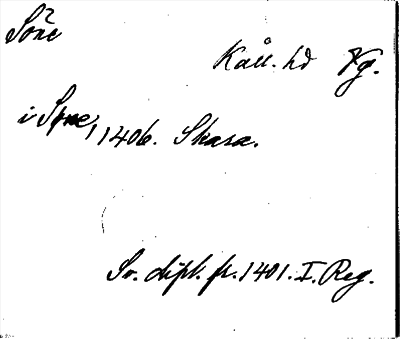 Söne
Kåll. hd Vg.
i Syne, 1406. Skara.
Sv. dipl. fr. 1401. I. Reg.